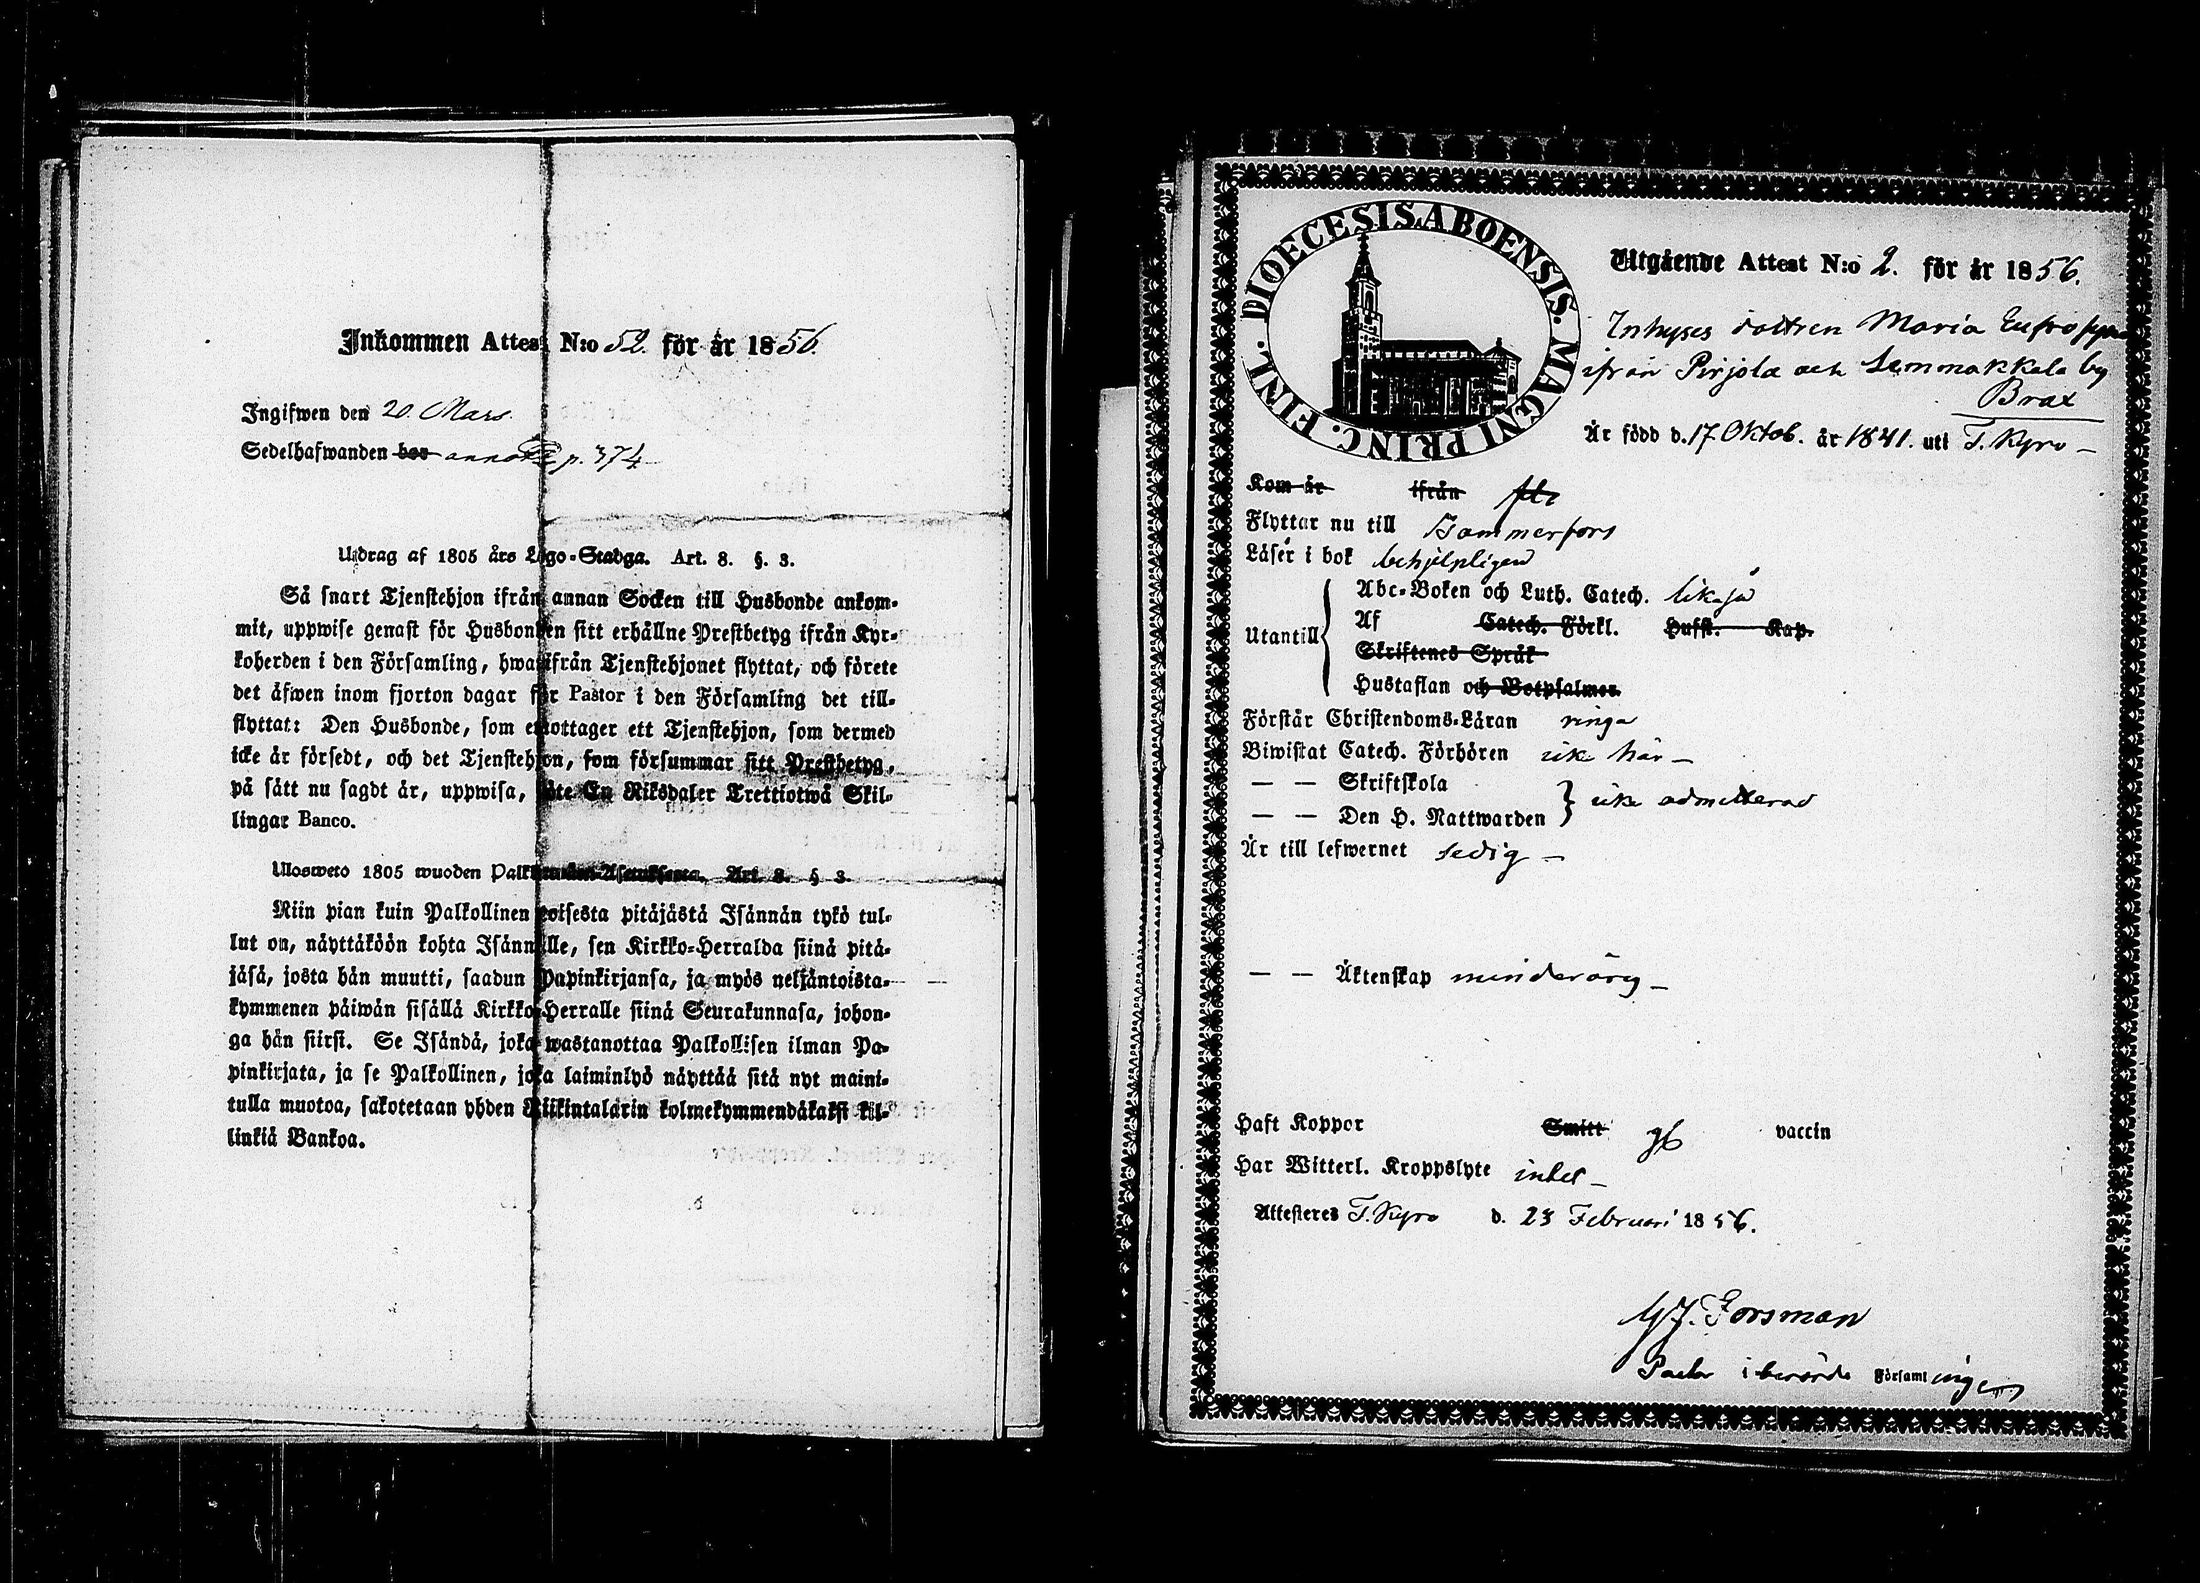 Inkommen Attest N:o 52. för år 1856.
Ingifwen den 20. Mars
Sedelhafwanden bor annot. p. 374
Utdrag af 1805 års Lego-Stadga. Art. 8. §. 3.
Så snart Tjenstehjon ifrån annan Socken till Husbonde ankom-
mit, uppwise genast för Husbonden sitt erhållne Prestbetyg ifrån Kyr-
koherden i den Församling, hwarifrån Tjenstehjonet flyttat, och förete
det äfwen inom fjorton dagar för Pastor i den Församling det till-
flyttat: Den Husbonde, som emottager ett Tjenstehjon, som dermed
icke är försedt, och det Tjenstehjon, som försummar sitt Prestbetyg,
på sätt nu sagdt är, uppwisa, böte En Riksdaler Trettiotwå Skil-
lingar Banco.
Ulosweto 1805 wuoden Palkollisten-Asetuksesta. Art. 8. § 3.
Niin pian kuin Palkollinen toisesta pitäjästä Isännän tykö tul-
lut on, näyttäköön kohta Isännälle, sen Kirkko-Herralda siinä pitä-
jäsä, josta hän muutti, saadun Papinkirjansa, ja myös neljäntoista-
kymmenen päiwän sisällä Kirkko-Herralle siinä Seurakunnasa, johon-
ga hän siirsi. Se Isändä, joka wastanottaa Palkollisen ilman Pa-
pinkirjata, ja se Palkollinen, joka laiminlyö näyttää sitä nyt maini-
tulla muotoa, sakotetaan yhden Riikintalarin kolmekymmendäkaksi kil-
linkiä Bankoa.
DIOECESIS ABOENSIS. MAGNI PRINC. FINL.
Utgående Attest N:o 2. för år 1856.
Inhyses dottren Maria Eufrosyna
ifrån Pirjola och Lemmakkala by
Brax
Är född d. 17 Oktob. år 1841. uti T. Kyro –
Kom år ifrån
Flyttar nu till Tammerfors
Läser i bok behjelpligen
Utantill
Abc-Boken och Luth. Catech. likaså
Af Catech. Förkl. Hufst. Kap.
Skriftenes Språk
Hustaflan och Botpsalmer.
Förstår Christendoms-Läran ringa
Biwistat Catech. Förhören icke här –
— — Skriftskola
— — Den H. Nattwarden } icke admitterad
Är till lefwernet sedig –
— — Äktenskap minderårig –
Haft Koppor Smitt vaccin
Har Witterl. Kroppslyte intet –
Attesteres T. Kyro d. 23 Februari 1856.
Forsman
Pastor i berörde Församlingen